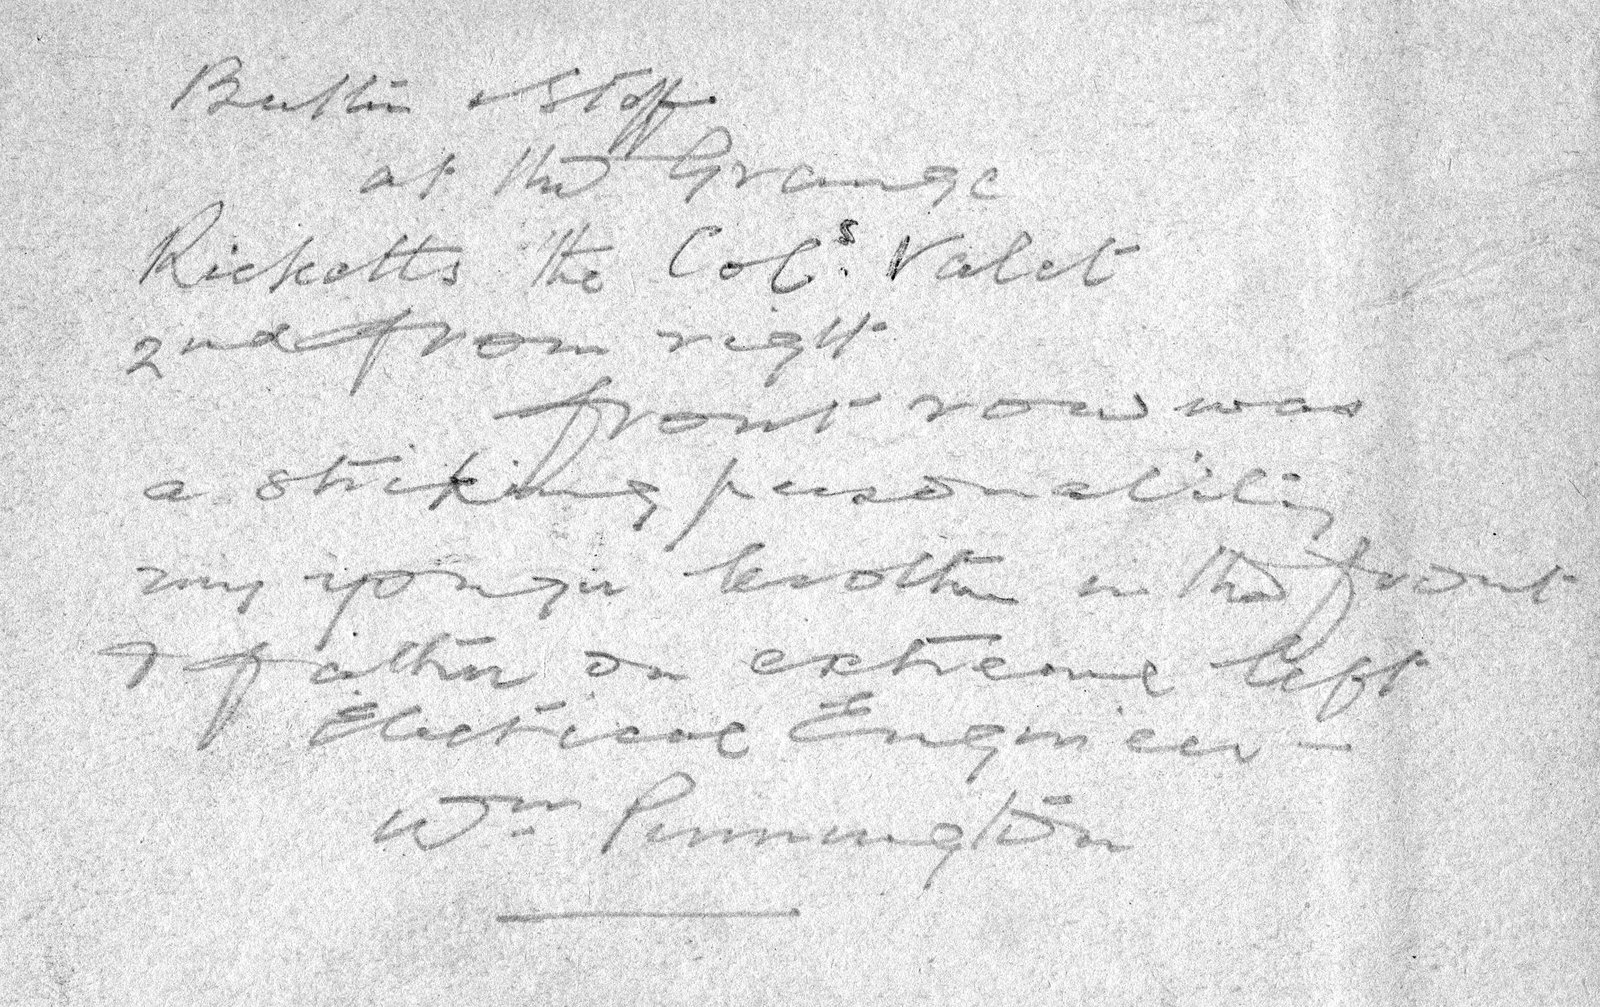 Butler & Staff
at the Grange
Ricketts the Col.s Valet
2nd from right
front row was
a striking personality
my younger brother in the front
& father on extreme left
Electrical Engineer –
Wm Pennington